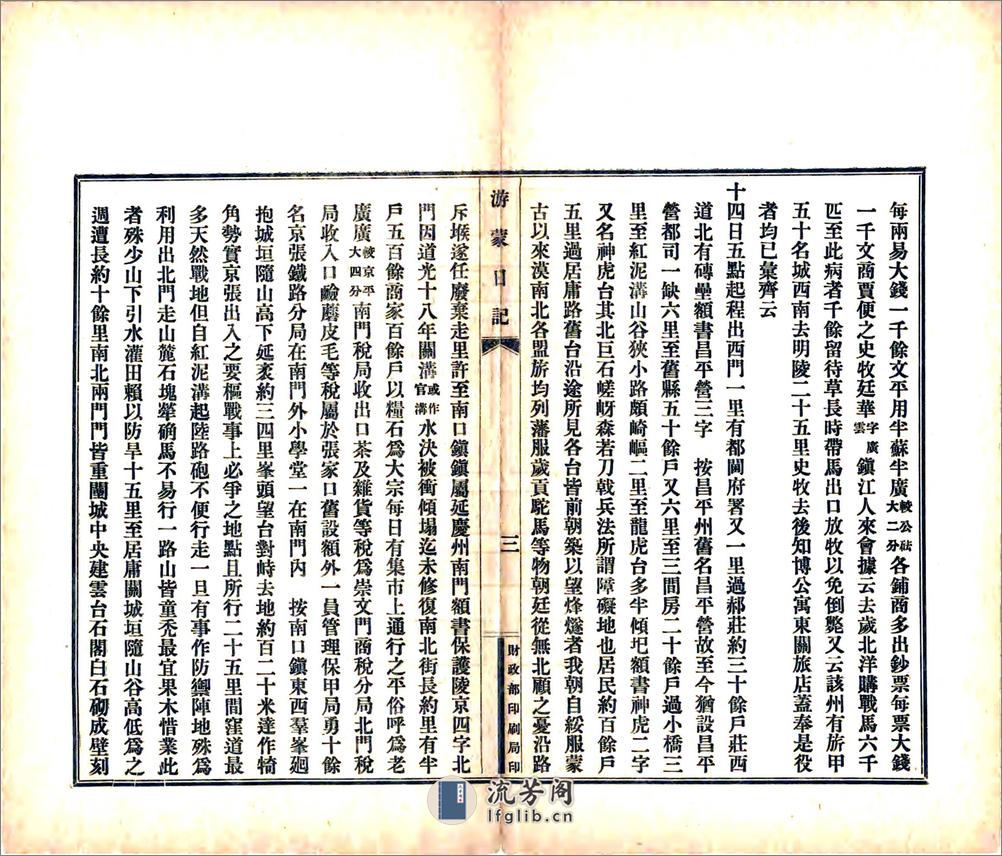 每兩易大錢一千餘文平用半蘇半廣較公砝大二分各鋪商多出鈔票每票大錢
一千文商賈便之史牧廷華字廣雲鎮江人來會據云去歲北洋購戰馬六千
匹至此病者千餘留待草長時帶馬出口放牧以免倒斃又云該州有旂甲
五十名城西南去明陵二十五里史牧去後知博公寓東關旅店蓋奉是役
者均已彙齊云
十四日五點起程出西門一里有都閫府署又一里過郝莊約三十餘戶莊西
道北有磚壘額書昌平營三字 按昌平州舊名昌平營故至今猶設昌平
營都司一缺六里至舊縣五十餘戶又六里至三間房二十餘戶過小橋三
里至紅泥溝山谷狹小路頗崎嶇二里至龍虎台多半傾圮額書神虎二字
又名神虎台其北巨石嵯岈森若刀戟兵法所謂障礙地也居民約百餘戶
五里過居庸路舊台沿途所見各台皆前朝築以望烽燧者我朝自綏服蒙
古以來漠南北各盟旂均列藩服歲貢駝馬等物朝廷從無北顧之憂沿路
游蒙日記
三
財政部印刷局印
斥堠遂任廢棄走里許至南口鎮鎮屬延慶州南門額書保護陵京四字北
門因道光十八年關溝或作官溝水決被衝傾塌迄未修復南北街長約里有半
戶五百餘商家百餘戶以糧石爲大宗每日有集市上通行之平俗呼爲老
廣廣較京平大四分南門稅局收出口茶及雜貨等稅爲崇文門商稅分局北門稅
局收入口鹼蘑皮毛等稅屬於張家口舊設額外一員管理保甲局勇十餘
名京張鐵路分局在南門外小學堂一在南門內 按南口鎮東西羣峯廻
抱城垣隨山高下延袤約三四里峯頭望台對峙去地約百二十米達作犄
角勢實京張出入之要樞戰事上必爭之地點且所行二十五里間窪道最
多天然戰地但自紅泥溝起陸路砲不便行走一旦有事作防禦陣地殊爲
利用出北門走山麓石塊犖确馬不易行一路山皆童禿最宜果木惜業此
者殊少山下引水灌田賴以防旱十五里至居庸關城垣隨山谷高低爲之
週遭長約十餘里南北兩門門皆重闉城中央建雲台石閣白石砌成壁刻
流芳阁
lfglib.cn